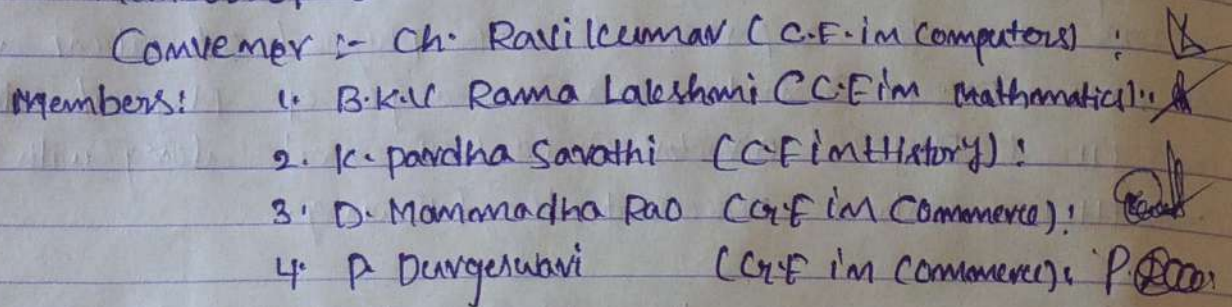 Convenor :- Ch. Ravikumar (C.F. in Computers) :
Members: 1. B.K.V Rama Lakshmi (C.F in Mathematics) :
2. K. pardha Sarathi (C.F in History) :
3. D. Manmadha Rao (G.F in Commerce) :
4. P. Durgeswari (G.F in Commerce) :